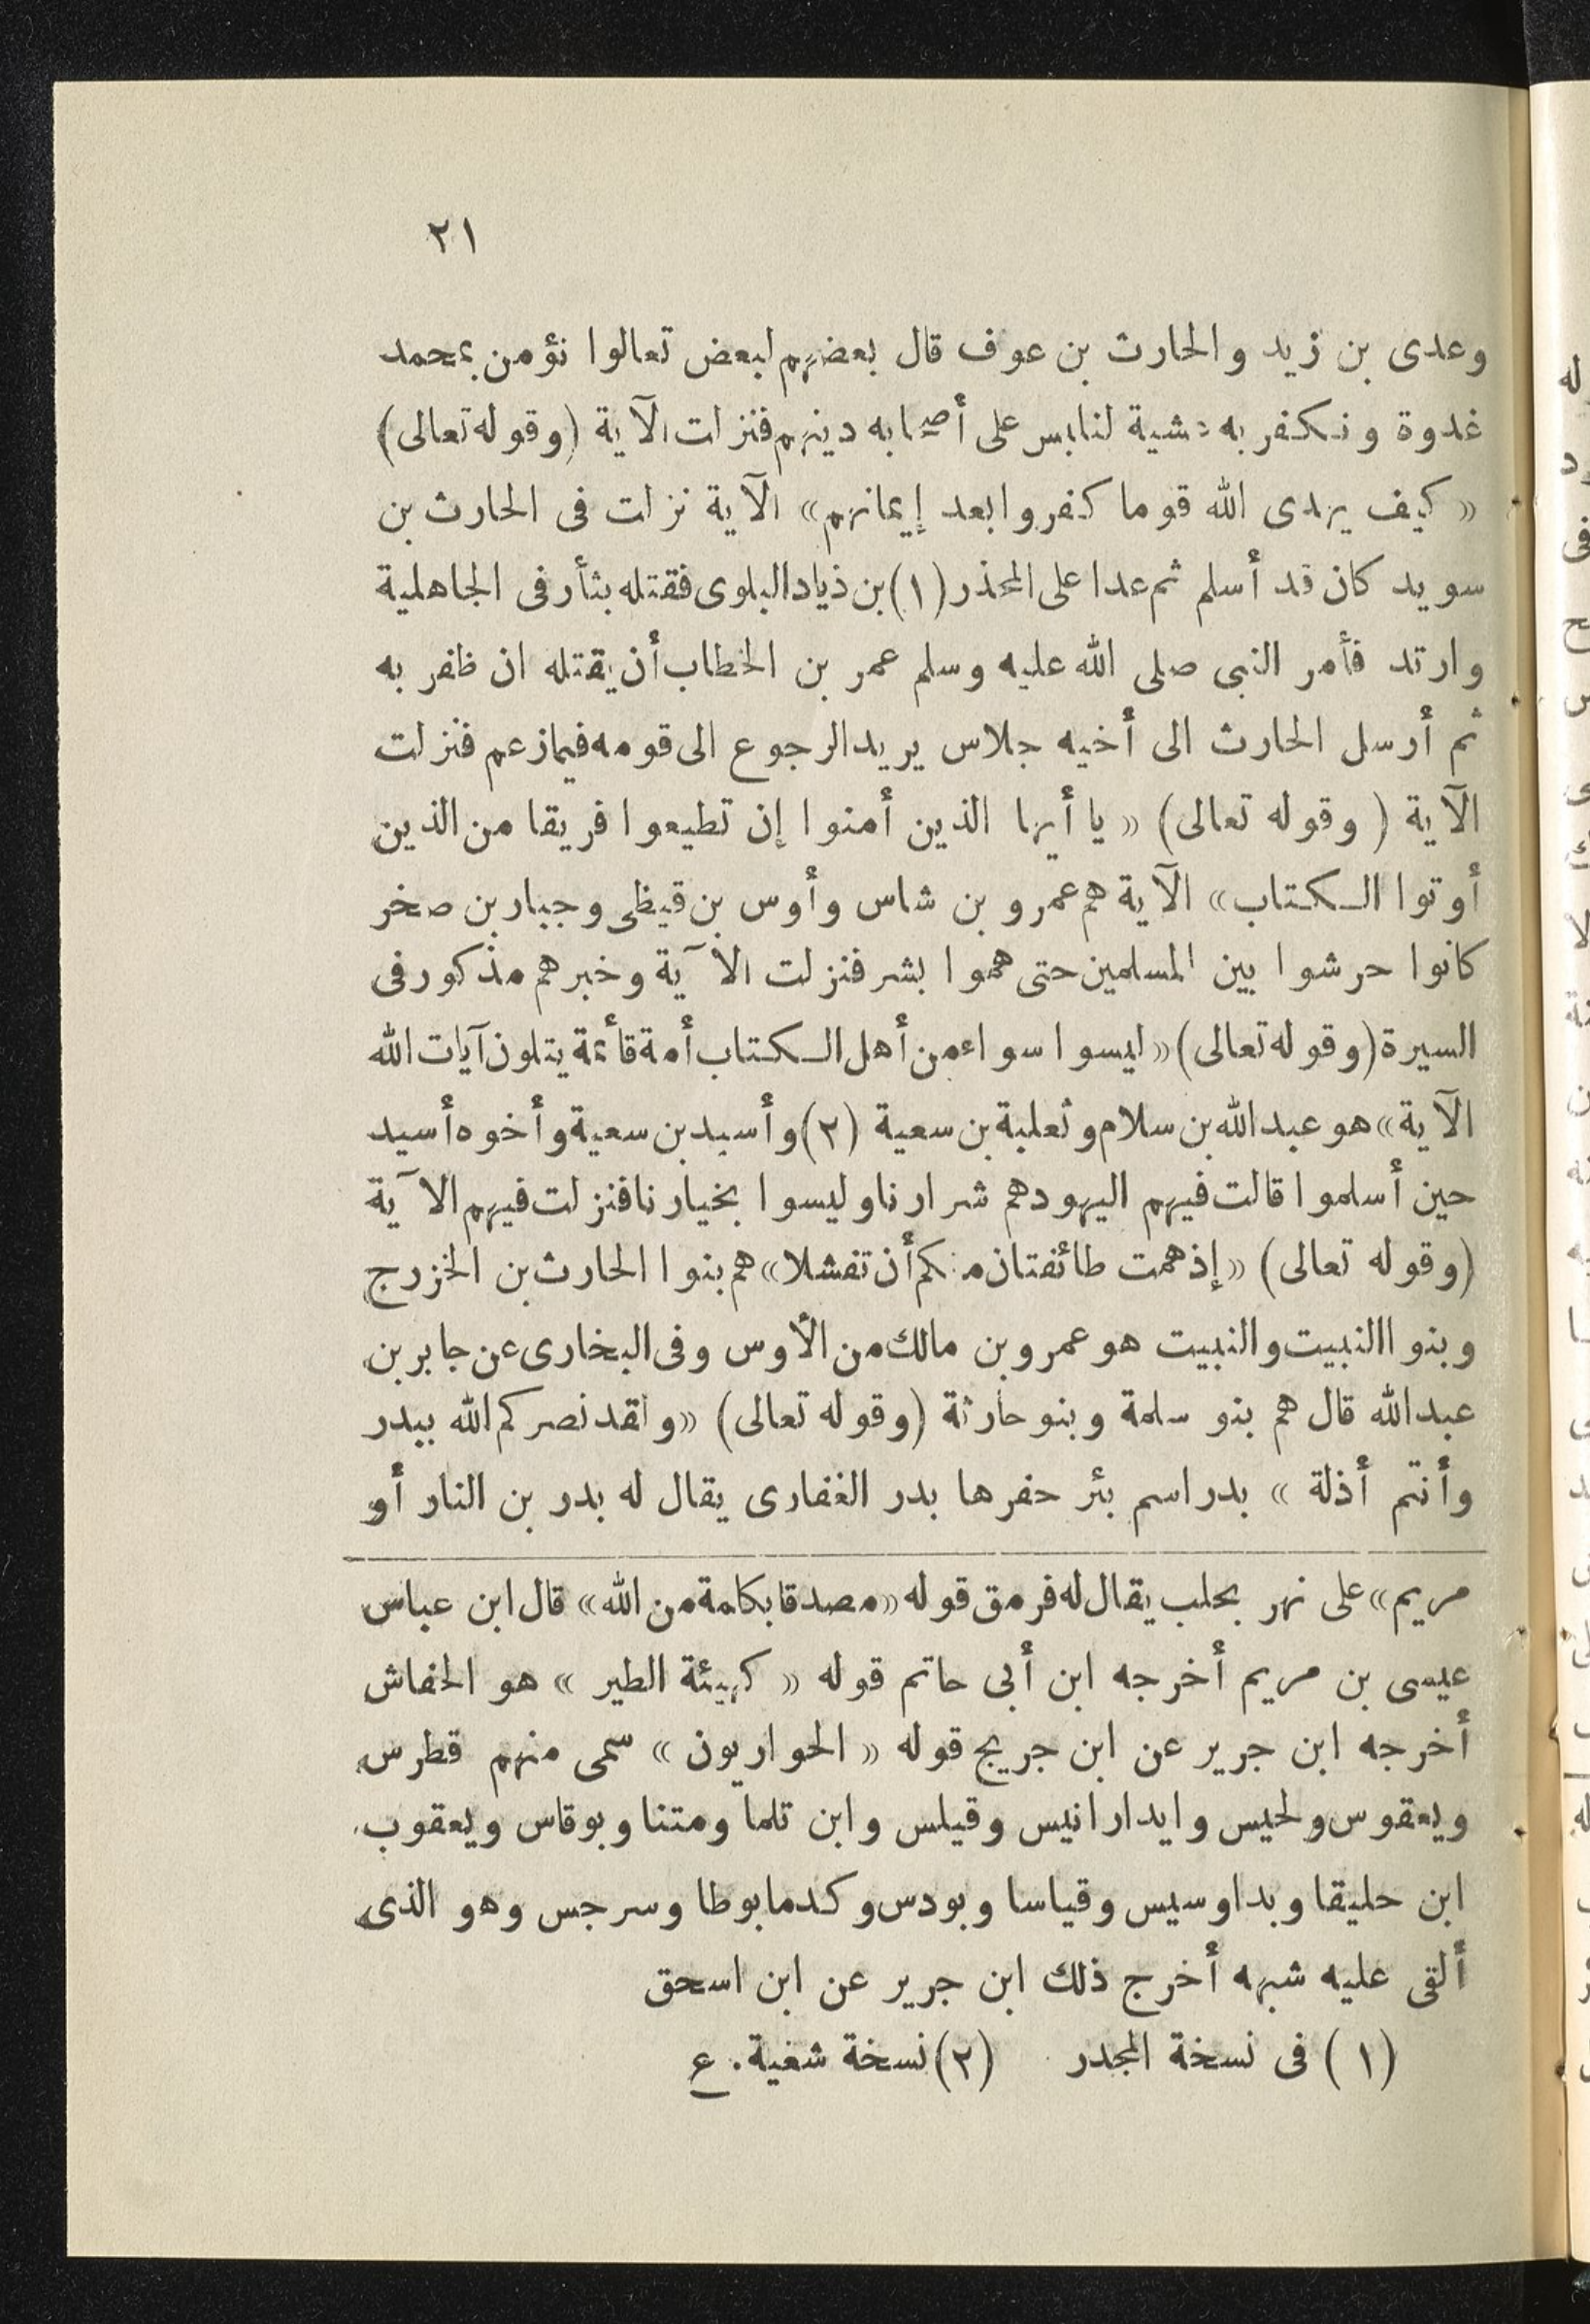 ٢١
وعدى بن زيد والحارث بن عوف قال بعضهم لبعض تعالوا نؤمن بمحمد
غدوة ونكفر به عشية لنلبس على أصحابه دينهم فنزلت الآية (وقوله تعالى)
« كيف يهدى الله قوما كفروا بعد إيمانهم» الآية نزلت فى الحارث بن
سويد كان قد أسلم ثم عدا على المحذر (١) بن ذياد البلوى فقتله بثأر فى الجاهلية
وارتد فأمر النبى صلى الله عليه وسلم عمر بن الخطاب أن يقتله ان ظفر به
ثم أرسل الحارث الى أخيه جلاس يريد الرجوع الى قومه فيما زعم فنزلت
الآية ( وقوله تعالى) « يا أيها الذين أمنوا إن تطيعوا فريقا من الذين
أوتوا الكتاب» الآية هم عمرو بن شاس وأوس بن قيظى وجبار بن صخر
كانوا حرشوا بين المسلمين حتى هموا بشر فنزلت الآية وخبرهم مذكور فى
السيرة (وقوله تعالى) «ليسوا سواء من أهل الكتاب أمة قائمة يتلون آيات الله
الآية» هو عبد الله بن سلام وثعلبة بن سعية (٢) وأسيد بن سعية وأخوه أسيد
حين أسلموا قالت فيهم اليهود هم شرارنا وليسوا بخيارنا فنزلت فيهم الآية
(وقوله تعالى) «إذ همت طائفتان منكم أن تفشلا» هم بنوا الحارث بن الخزرج
وبنو االنبيت والنبيت هو عمرو بن مالك من الأوس وفى البخارى عن جابر بن
عبد الله قال هم بنو سلمة وبنو حارثة (وقوله تعالى) «ولقد نصركم الله ببدر
وأنتم أذلة » بدر اسم بئر حفرها بدر الغفارى يقال له بدر بن النار أو
مريم» على نهر بحلب يقال له فرمق قوله «مصدقا بكلمة من الله» قال ابن عباس
عيسى بن مريم أخرجه ابن أبى حاتم قوله « كهيئة الطير » هو الخفاش
أخرجه ابن جرير عن ابن جريج قوله « الحواريون » سمى منهم قطرس
ويعقوس ولحيس وايدارانيس وقيلس وابن تلما ومتنا وبوقاس ويعقوب
ابن حليقا وبداوسيس وقياسا وبودس وكدمابوطا وسرجس وهو الذى
ألقى عليه شبهه أخرج ذلك ابن جرير عن ابن اسحق
(١) فى نسخة المجدر (٢) نسخة شغية. ع